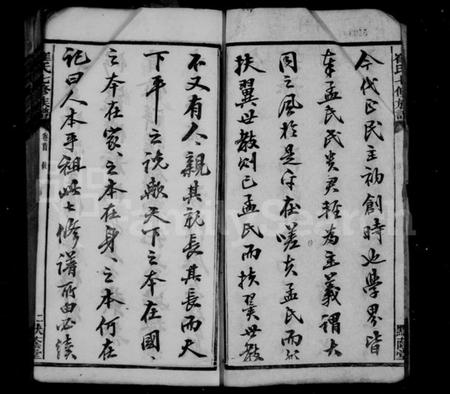 今代正民主初創時也學界皆
奉孟氏民貴君輕為主義謂大
同之風於是乎在嗟夫孟氏而欲
扶翼世教則已孟氏而扶翼世教
不又有人人親其親長其長而天
下平之說歟天下之本在國國
之本在家家之本在身身之本何在
記曰人本乎祖此七修譜所由必續
崔氏七修族譜
卷首
FamilySearch